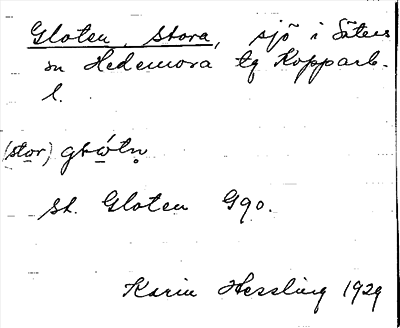 Gloten, Stora, sjö i Säters
sn Hedemora tg Kopparb.
l.
(stor)
st. Gloten G90.
Karin Hessling 1929